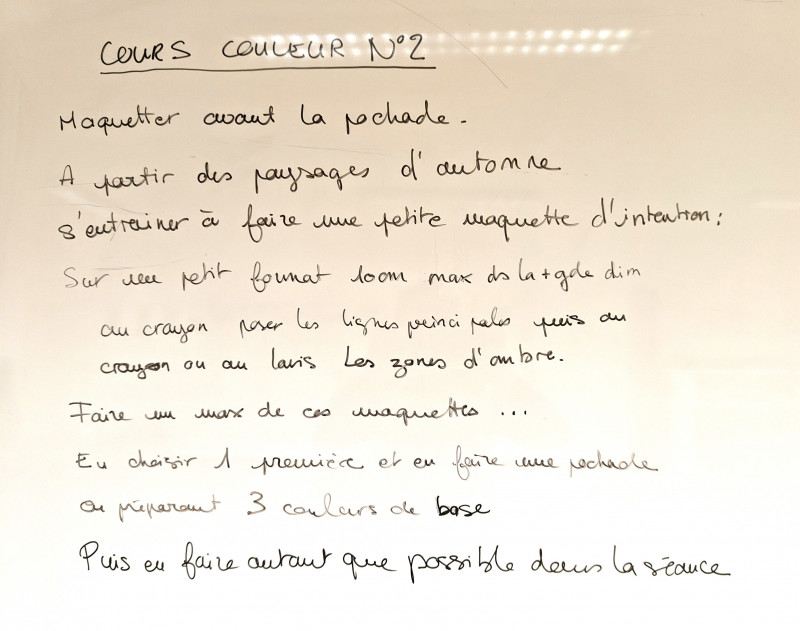 COURS COULEUR N°2
Maquetter avant la pochade.
A partir des paysages d'automne
s'entrainer à faire une petite maquette d'intention:
Sur un petit format 10cm max ds la + gde dim
au crayon poser les lignes principales puis au
crayon ou au lavis les zones d'ombre.
Faire un max de ces maquettes ...
En choisir 1 première et en faire une pochade
en préparant 3 couleurs de base
Puis en faire autant que possible dans la séance